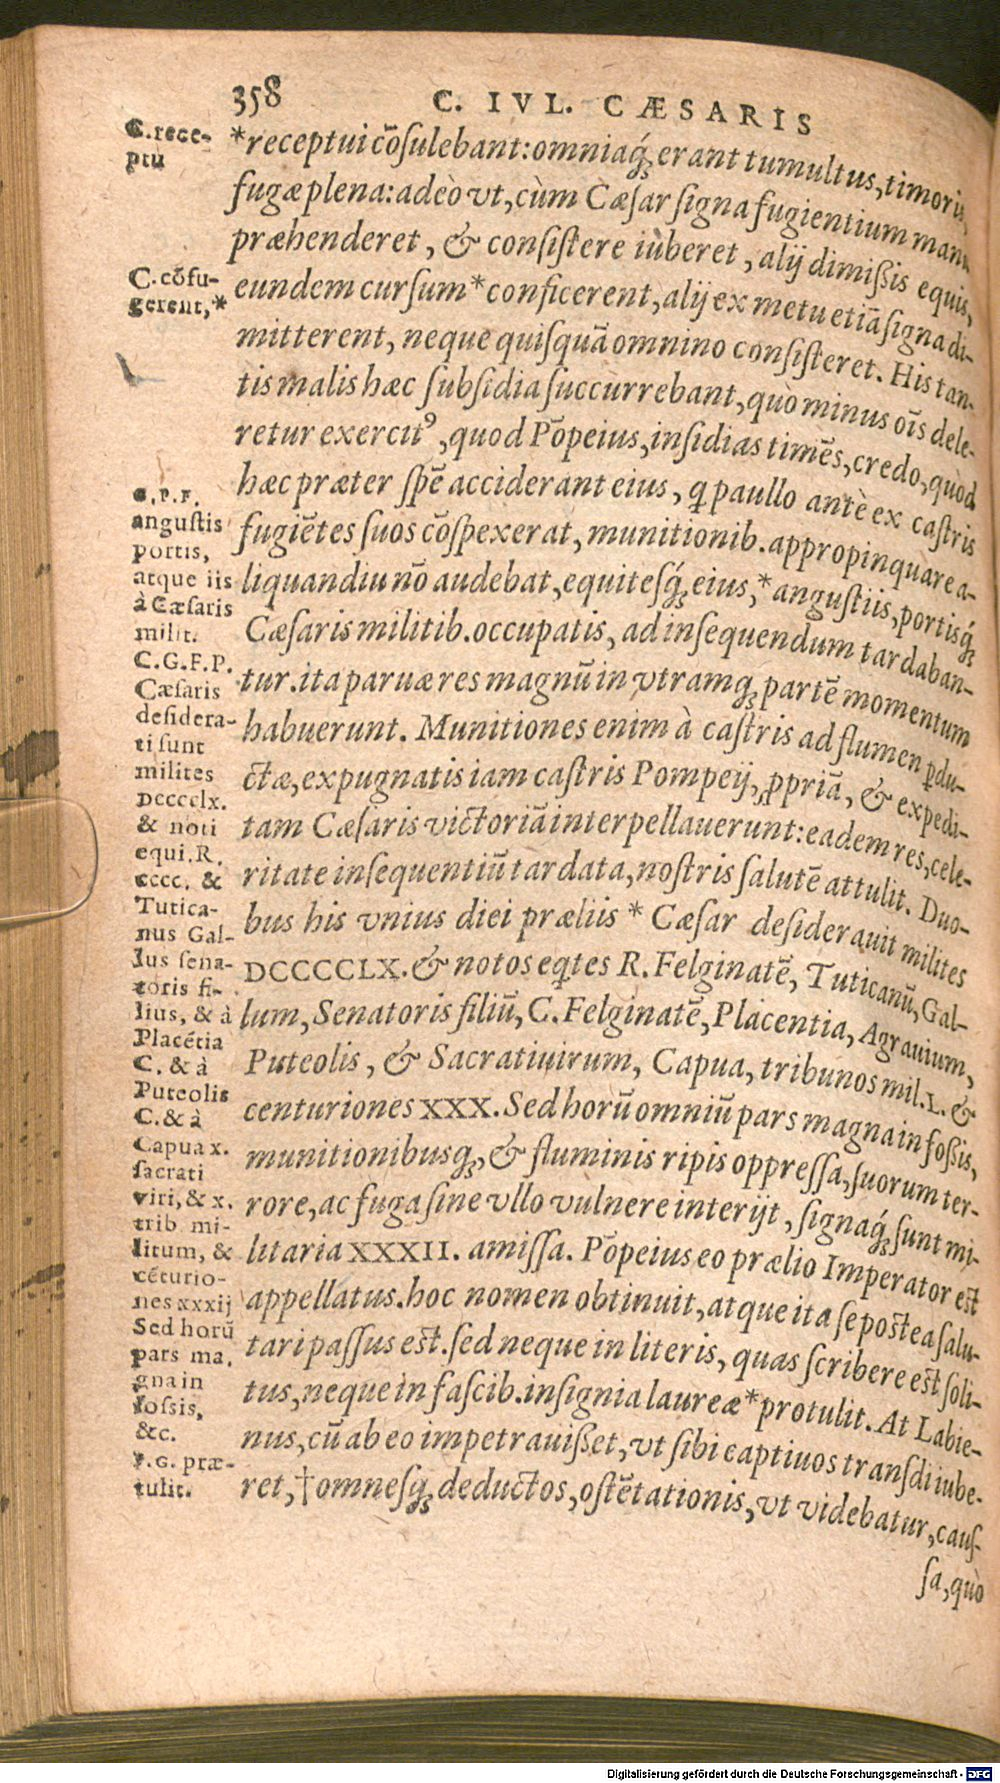 358
C. IVL. CÆSARIS
*receptui cõsulebant: omniaq́; erant tumultus, timoris,
fugæ plena: adeò vt, cùm Cæsar signa fugientium manu
præhenderet, & consistere iuberet, alij dimißis equis,
eundem cursum * conficerent, alij ex metu etiã signa di-
mitterent, neque quisquã omnino consisteret. His tan-
tis malis hæc subsidia succurrebant, quò minus oı̄s dele-
retur exercitꝰ, quod Põpeius, insidias timẽs, credo, quòd
hæc præter spẽ acciderant eius, ꝗ paullo antè ex castris
fugiẽtes suos cõspexerat, munitionib. appropinquare a-
liquandiu nõ audebat, equitesq́; eius, * angustiis, portisq́;
Cæsaris militib. occupatis, ad insequendum tardaban-
tur. ita paruæ res magnũ in vtramq; partẽ momentum
habuerunt. Munitiones enim à castris ad flumen ꝑdu-
ctæ, expugnatis iam castris Pompeij, ꝓpriã, & expedi-
tam Cæsaris victoriã interpellauerunt: eadem res, cele-
ritate insequentiũ tardata, nostris salutẽ attulit. Duo-
bus his vnius diei præliis * Cæsar desiderauit milites
DCCCCLX. & notos eq̃tes R. Felginatẽ, Tuticanũ, Gal-
lum, Senatoris filiũ, C. Felginatẽ, Placentia, Agrauium,
Puteolis, & Sacratiuirum, Capua, tribunos mil. L. &
centuriones XXX. Sed horũ omniũ pars magna in foßis,
munitionibusq;, & fluminis ripis oppressa, suorum ter-
rore, ac fuga sine vllo vulnere interijt, signaq́; sunt mi-
litaria XXXII. amissa. Põpeius eo prælio Imperator est
appellatus. hoc nomen obtinuit, atque ita se postea salu-
tari passus est. sed neque in literis, quas scribere est soli-
tus, neque in fascib. insignia laureæ * protulit. At Labie-
nus, cũ ab eo impetrauißet, vt sibi captiuos transdi iube-
ret, † omnesq; deductos, ostẽtationis, vt videbatur, caus-
sa, quò
C. rece-
ptu
C. cõfu-
gerent, *
G. P. F.
angustis
portis,
atque iis
à Cæsaris
milit.
C. G. F. P.
Cæsaris
desidera-
ti sunt
milites
DCCCCLX.
& noti
equi. R.
CCCC. &
Tutica-
nus Gal-
lus sena-
toris fi-
lius, & à
Placẽtia
C. & à
Puteolis
C. & à
Capua x.
sacrati
viri, & x.
trib. mi-
litum, &
cẽturio-
nes xxxij
Sed horũ
pars ma.
gna in
fossis,
&c.
F. G. præ-
tulit.
Digitalisierung gefördert durch die Deutsche Forschungsgemeinschaft - DFG